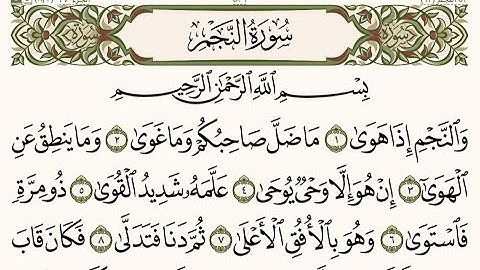 سُورَةُ النَّجْمِ
بِسْمِ اللَّهِ الرَّحْمَٰنِ الرَّحِيمِ
وَالنَّجْمِ إِذَا هَوَىٰ ١ مَا ضَلَّ صَاحِبُكُمْ وَمَا غَوَىٰ ٢ وَمَا يَنطِقُ عَنِ
الْهَوَىٰ ٣ إِنْ هُوَ إِلَّا وَحْيٌ يُوحَىٰ ٤ عَلَّمَهُ شَدِيدُ الْقُوَىٰ ٥ ذُو مِرَّةٍ
فَاسْتَوَىٰ ٦ وَهُوَ بِالْأُفُقِ الْأَعْلَىٰ ٧ ثُمَّ دَنَا فَتَدَلَّىٰ ٨ فَكَانَ قَابَ